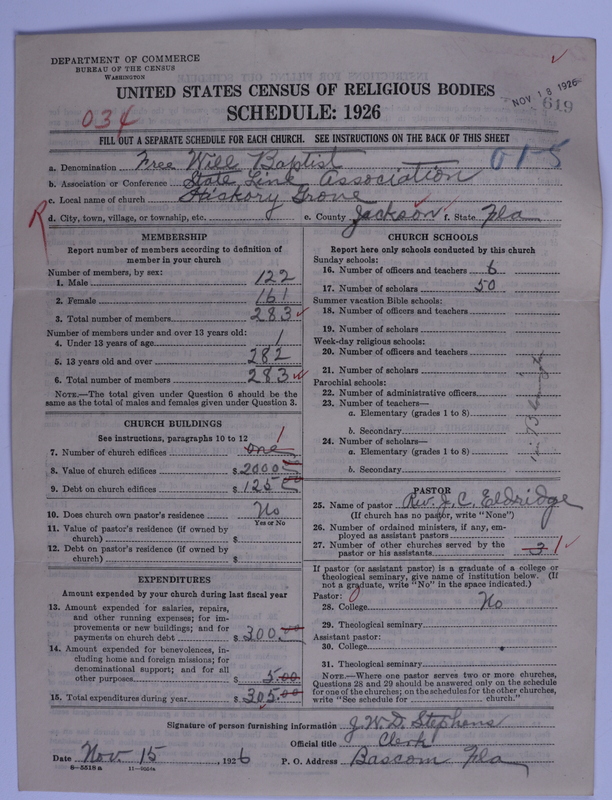 DEPARTMENT OF COMMERCE
BUREAU OF THE CENSUS
WASHINGTON
NOV 18 1926
619
UNITED STATES CENSUS OF RELIGIOUS BODIES
034
SCHEDULE: 1926
FILL OUT A SEPARATE SCHEDULE FOR EACH CHURCH. SEE INSTRUCTIONS ON THE BACK OF THIS SHEET
015
a. Denomination Free Will Baptist
b. Association or Conference State Line Association
c. Local name of church Hickory Grove
R
d. City, town, village, or township, etc. e. County Jackson f. State Fla
MEMBERSHIP
Report number of members according to definition of
member in your church
Number of members, by sex:
1. Male 122
2. Female 161
3. Total number of members 283
Number of members under and over 13 years old:
4. Under 13 years of age 1
5. 13 years old and over 282
6. Total number of members 283
NOTE.—The total given under Question 6 should be
same as the total of males and females given under Question 3.
CHURCH BUILDINGS
See instructions, paragraphs 10 to 12
7. Number of church edifices one 1
8. Value of church edifices $ 2000
9. Debt on church edifices $ 125
10. Does church own pastor's residence No
Yes or No
11. Value of pastor's residence (if owned by
church) $
12. Debt on pastor's residence (if owned by
church) $
EXPENDITURES
Amount expended by your church during last fiscal year
13. Amount expended for salaries, repairs,
and other running expenses; for im-
provements or new buildings; and for
payments on church debt $ 300.00
14. Amount expended for benevolences, in-
cluding home and foreign missions; for
denominational support; and for all
other purposes $ 5.00
15. Total expenditures during year $ 305.00
CHURCH SCHOOLS
Report here only schools conducted by this church
Sunday schools:
16. Number of officers and teachers 6
17. Number of scholars 50
Summer vacation Bible schools:
18. Number of officers and teachers
19. Number of scholars
Week-day religious schools:
20. Number of officers and teachers
21. Number of scholars
Parochial schools:
22. Number of administrative officers
23. Number of teachers—
a. Elementary (grades 1 to 8)
b. Secondary
24. Number of scholars—
a. Elementary (grades 1 to 8)
b. Secondary
PASTOR
25. Name of pastor Rev. J. C. Eldridge
(If church has no pastor, write "None")
26. Number of ordained ministers, if any, em-
ployed as assistant pastors
27. Number of other churches served by the
pastor or his assistants 3 1
If pastor (or assistant pastor) is a graduate of a college or
theological seminary, give name of institution below. (If
not a graduate, write "No" in the space indicated.)
Pastor: 0
28. College No
29. Theological seminary
Assistant pastor:
30. College
31. Theological seminary
NOTE.—Where one pastor serves two or more churches,
Questions 28 and 29 should be answered only on the schedule
for one of the churches; on the schedules for the other churches,
write "See schedule for church."
Signature of person furnishing information J. W. D. Stephens
Official title Clerk
Date Nov. 15, 1926 P. O. Address Bascom Fla
8—5518a